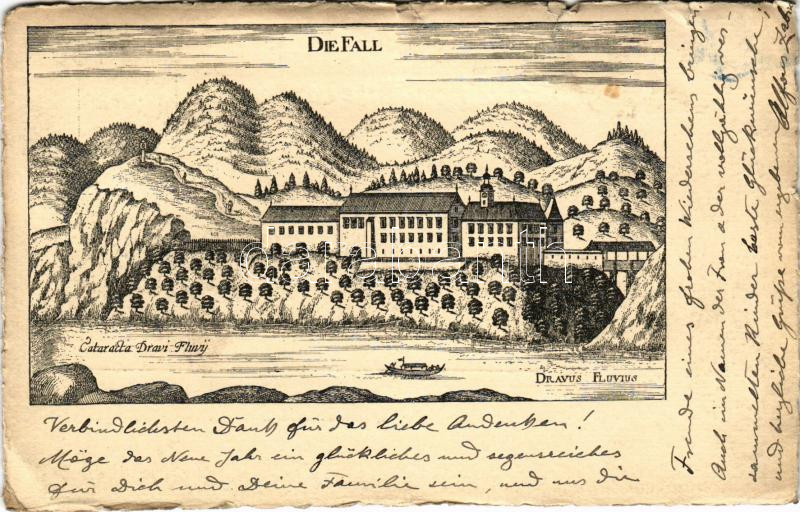 DIE FALL
Cataracta Dravi Fluvij
DRAVUS FLUVIUS
Verbindlichsten Dank für das liebe Andenken!
Möge das Neue Jahr ein glückliches und segensreiches
für Dich und Deine Familie sein, und uns die
Freude eines frohen Wiedersehens bringen.
Auch im Namen der Frau u der vollzählig ver-
sammelten Kinder beste Glückwünsche,
und herzliche Grüße vom ergebenen Alfons